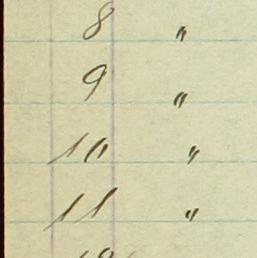 8 "
9 "
10 "
11 "